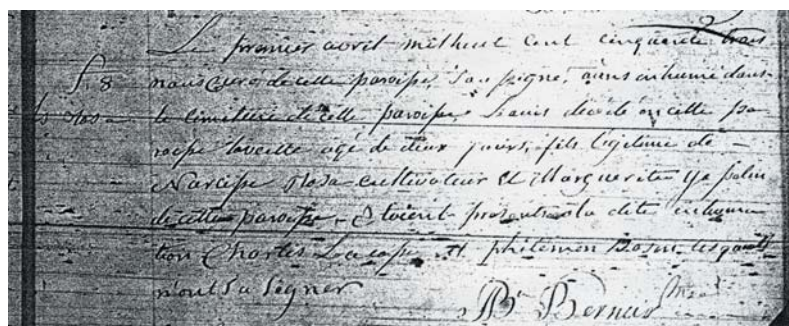 Le premier avril mil huit cent cinquante trois
S. 8 nous curé de cette paroisse, soussigné, avons inhumé dans
Rosa le cimetiere de cette paroisse Louis décédé en cette pa
roisse la veille agé de deux jours, fils légitime de
Narcisse Rosa cultivateur et Marguerite
de cette paroisse - Etoient présents a la dite inhuma
tion Charles et philemon lesquels
n'ont su signer